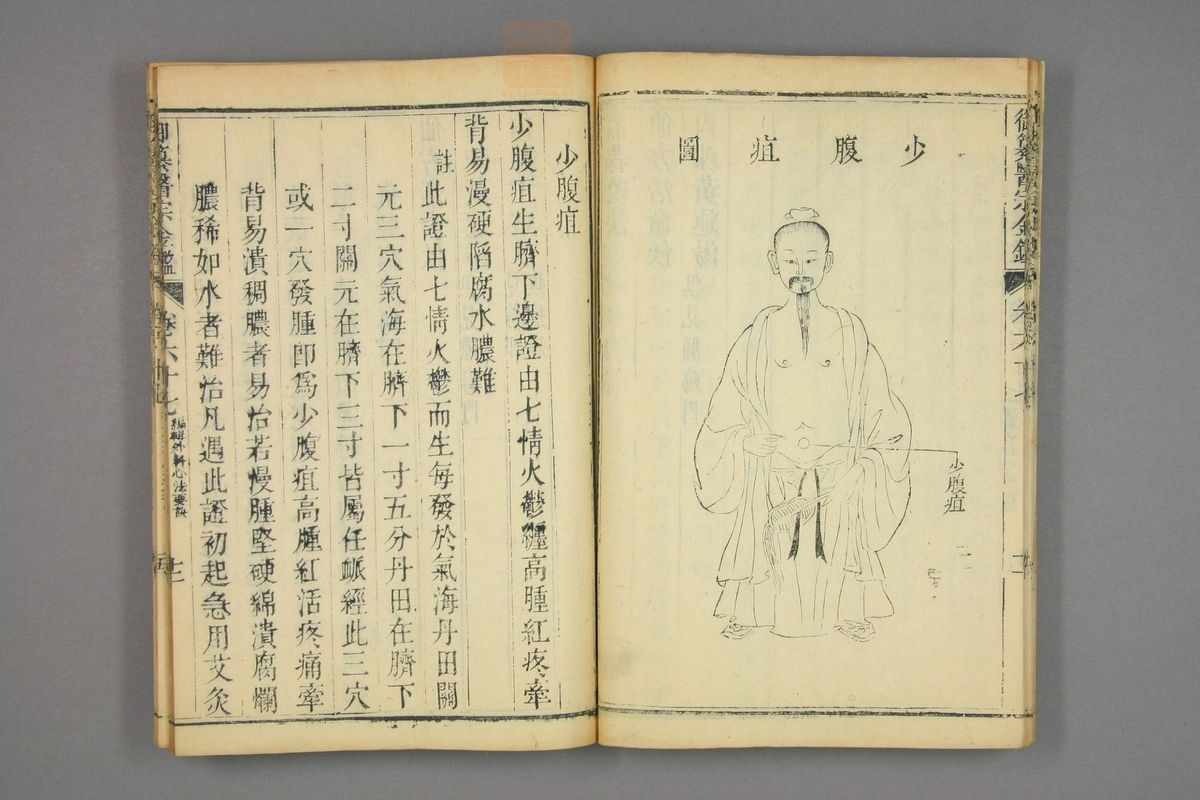 御纂醫宗金鑑
少腹疽圖
少腹疽
少腹疽
少腹疽生臍下邊證由七情火鬱纏高腫紅疼牽
背易漫硬陷腐水膿難
註此證由七情火鬱而生每發於氣海丹田關
元三穴氣海在臍下一寸五分丹田在臍下
二寸關元在臍下三寸皆屬任脈經此三穴
或一穴發腫卽爲少腹疽高腫紅活疼痛牽
背易潰稠膿者易治若漫腫堅硬綿潰腐爛
膿稀如水者難治凡遇此證初起急用艾灸
御纂醫宗金鑑
卷六十七
編輯外科心法要訣